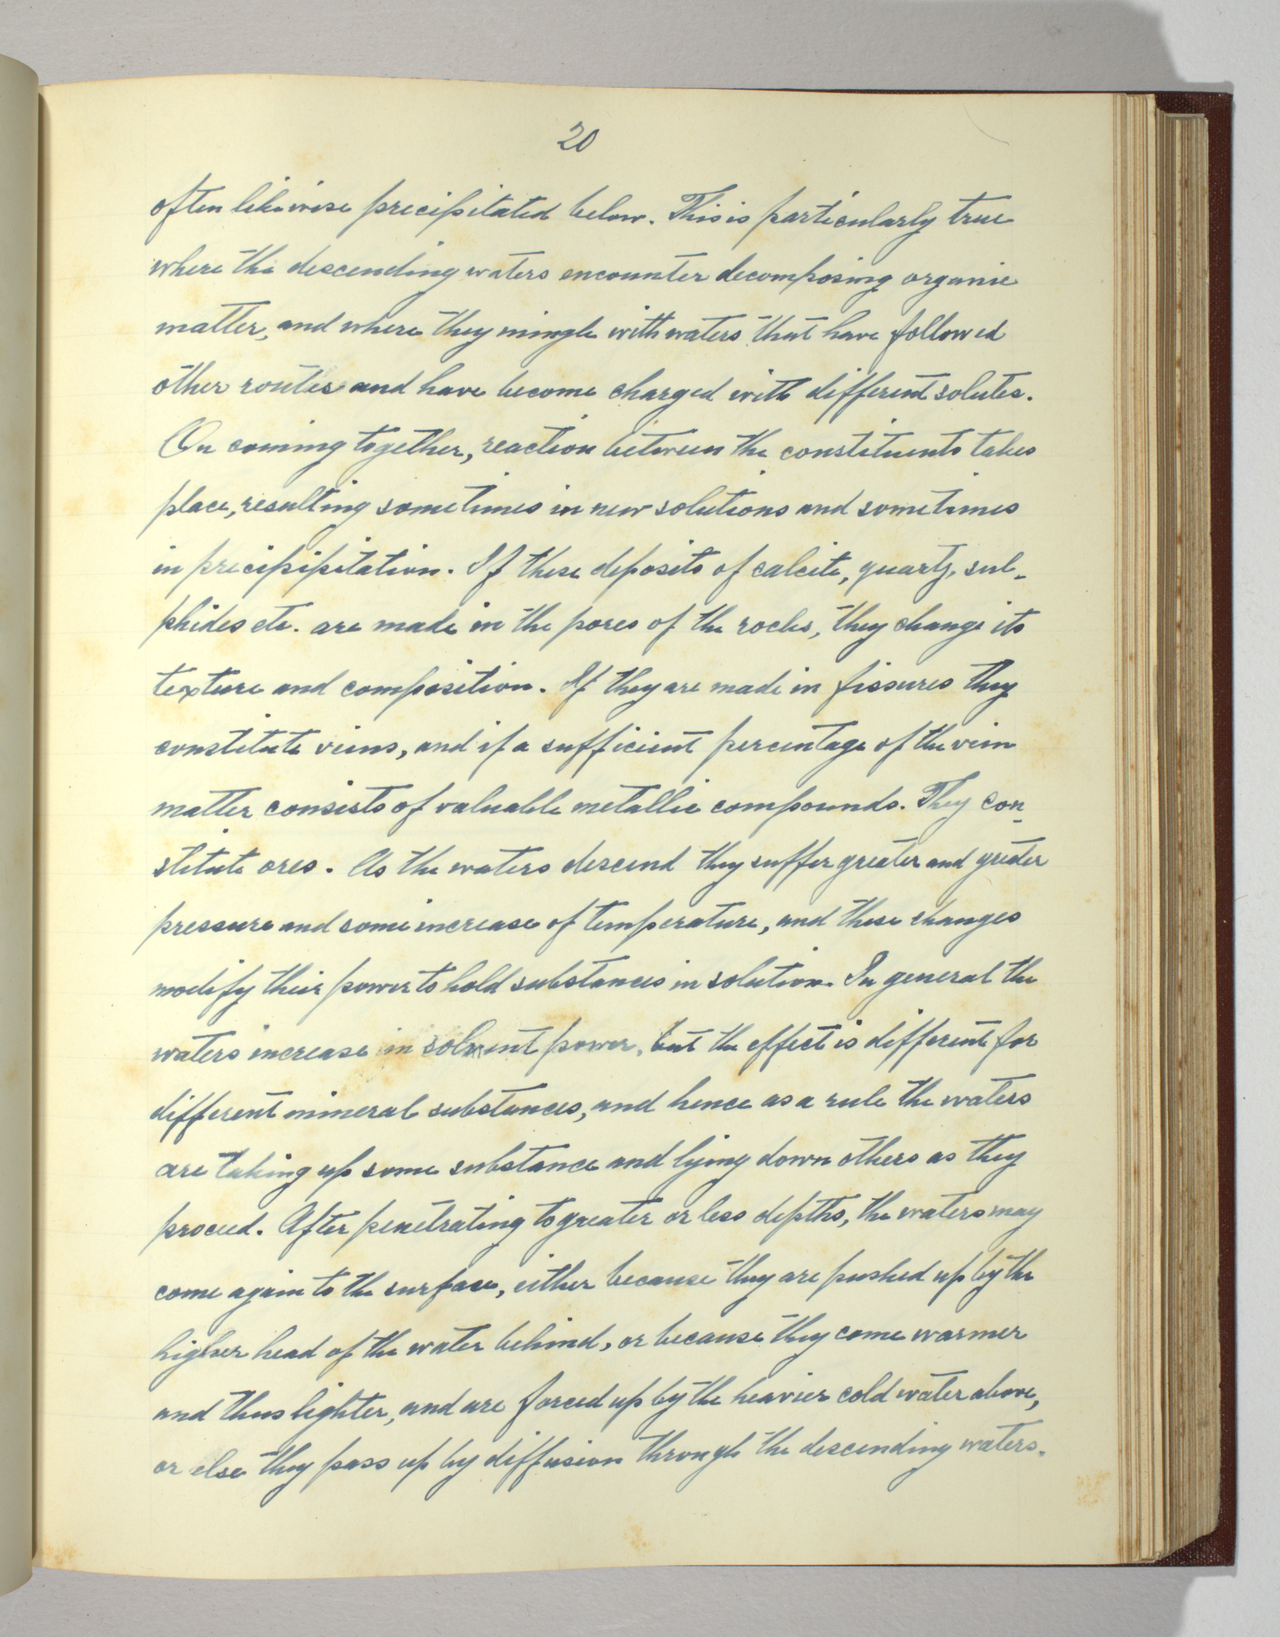 20
often likewise precipitated below. This is particularly true
where the descending waters encounter decomposing organic
matter, and where they mingle with waters that have followed
other routes and have become charged with different solutes.
On coming together, reaction between the constituents takes
place, resulting sometimes in new solutions and sometimes
in precipipitation. If these deposits of calcite, quartz, sul-
phides etc. are made in the pores of the rocks, they change its
texture and composition. If they are made in fissures they
constitute veins, and if a sufficient percentage of the vein
matter consists of valuable metallic compounds. They con-
stitute ores. As the waters descend they suffer greater and greater
pressure and some increase of temperature, and these changes
modify their power to hold substances in solution. In general the
waters increase in solvent power, but the effect is different for
different mineral substances, and hence as a rule the waters
are taking up some substance and lying down others as they
proceed. After penetrating to greater or less depths, the waters may
come again to the surface, either because they are pushed up by the
higher head of the water behind, or because they come warmer
and thus lighter, and are forced up by the heavier cold water above,
or else they pass up by diffusion through the descending waters.